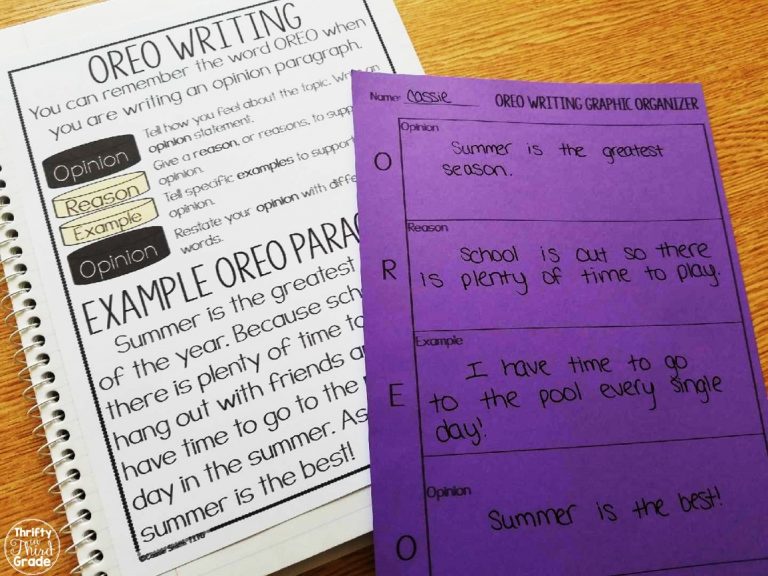 OREO WRITING
You can remember the word OREO when
you are writing an opinion paragraph.
Opinion
Tell how you feel about the topic. Write an
opinion statement.
Reason
Give a reason, or reasons, to
opinion.
Example
Tell specific examples to support
opinion.
Opinion
Restate your opinion with
words.
EXAMPLE OREO
Summer is the greatest
of the year. Because
there is plenty of time to
hang out with friends
have time to go to the
day in the summer. As
summer is the best!
Name: Cassie
OREO WRITING GRAPHIC ORGANIZER
O
Opinion
Summer is the greatest
season.
R
Reason
School is out so there
is plenty of time to play.
E
Example
I have time to go
to the pool every single
day!
O
Opinion
Summer is the best!
Thrifty
in
Third
Grade